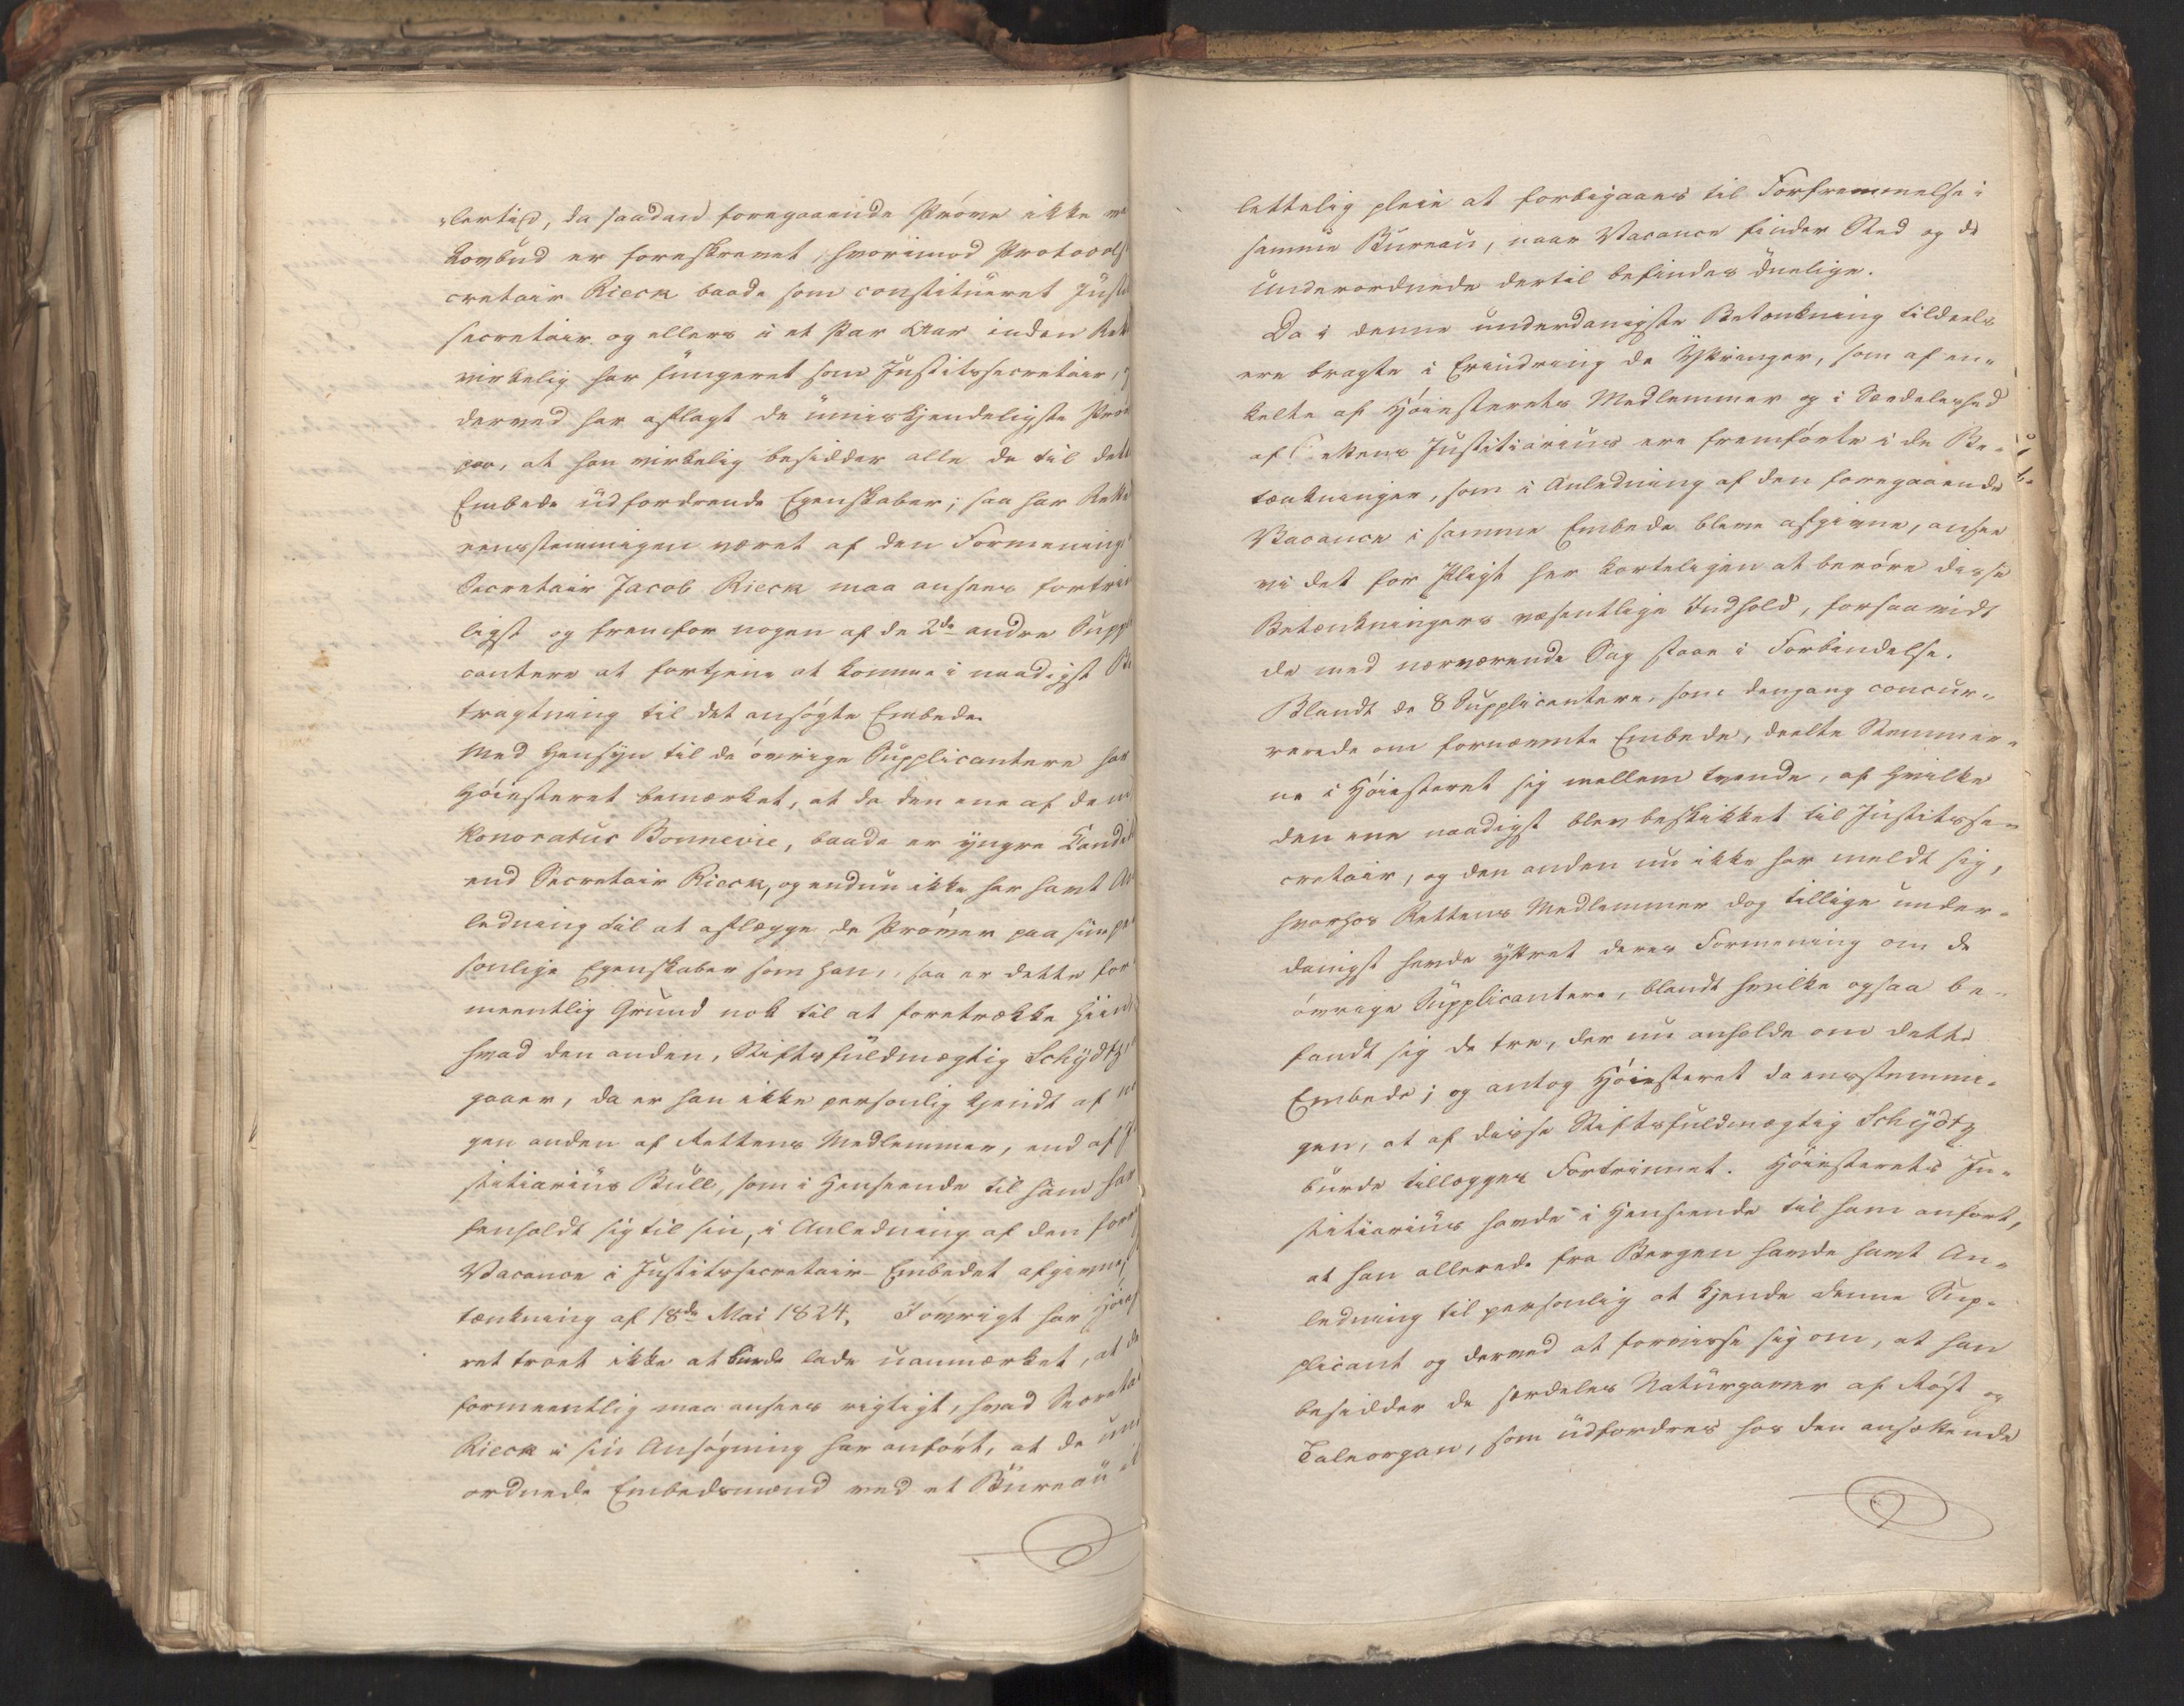 lertid, da saadan foregaaende Prøve ikke ved
Lovbud er foreskrevet, hvorimod Protocolse
cretair Rieck baade som constitueret Justi
secretair og ellers i et Par Aar inden Ret
virkelig har fungeret som Justitssecretair,
derved har aflagt de umiskjendeligste Prøv
paa, at han virkelig besidder alle de til dette
Embede udfordrende Egenskaber; saa har Rette
eensstemmigen været af den Formening
Secretair Jacob Rieck maa ansees fortrin
ligst og fremfor nogen af de 2de andre Suppli
cantere at fortjene at komme i naadigst Be
tragtning til det ansøgte Embede.
Med Hensyn til de øvrige Supplicantere har
Høiesteret bemærket, at da den ene af dem
Honoratus Bonnevie, baade er yngre Candid
end Secretair Rieck, og endnu ikke har havt An
ledning til at aflægge de Prøver paa sine per
sonlige Egenskaber som han, saa er dette for
meentlig Grund nok til at foretrække hiin
hvad den anden, Stiftsfuldmægtig Schydtz
gaaer, da er han ikke personlig kjendt af no
gen anden af Rettens Medlemmer, end af Ju
stitiarius Bull, som i Henseende til ham har
henholdt sig til sin, i Anledning af den fore
Vacance i Justitssecretair-Embedet afgivne
tænkning af 18de Mai 1824. Iøvrigt har Høieste
ret troet ikke at burde lade uanmærket, at de
formeentlig maa ansees rigtigt, hvad Secretai
Rieck i sin Ansøgning har anført, at de und
ordnede Embedsmænd ved et Bureau ei
lettelig pleie at forbigaaes til Forfremmelse i
samme Bureau, naar Vacance finder Sted og de
Underordnede dertil befindes duelige.
Da i denne underdanigste Betænkning tildeels
ere bragte i Erindring de Yttringer, som af en-
kelte af Høiesterets Medlemmer og i Særdeleshed
af Rettens Justitiarius ere fremførte i de Be-
tænkninger, som i Anledning af den foregaaende
Vacance i samme Embede bleve afgivne, ansee
vi det for Pligt her korteligen at berøre disse
Betænkningers væsentlige Indhold, forsaavidt
de med nærværende Sag staae i Forbindelse.
Blandt de 8 Supplicantere, som dengang concur-
rerede om fornævnte Embede, deelte Stemmer-
ne i Høiesteret sig mellem tvende, af hvilke
den ene naadigst blev beskikket til Justitsse-
cretair, og den anden nu ikke har meldt sig,
hvorhos Rettens Medlemmer dog tillige under-
danigst havde yttret deres Formening om de
øvrige Supplicantere, blandt hvilke ogsaa be-
fandt sig de tre, der nu anholde om dette
Embede; og antog Høiesteret da eensstemmi-
gen, at af disse Stiftsfuldmægtig Schydtz
burde tillægges Fortrinnet. Høiesterets Ju-
stitiarius havde i Henseende til ham anført,
at han allerede fra Bergen havde havt An-
ledning til personlig at kjende denne Sup-
plicant og derved at forvisse sig om, at han
besidder de særdeles Naturgaver af Røst og
Taleorgan, som udfordres hos den ansættende